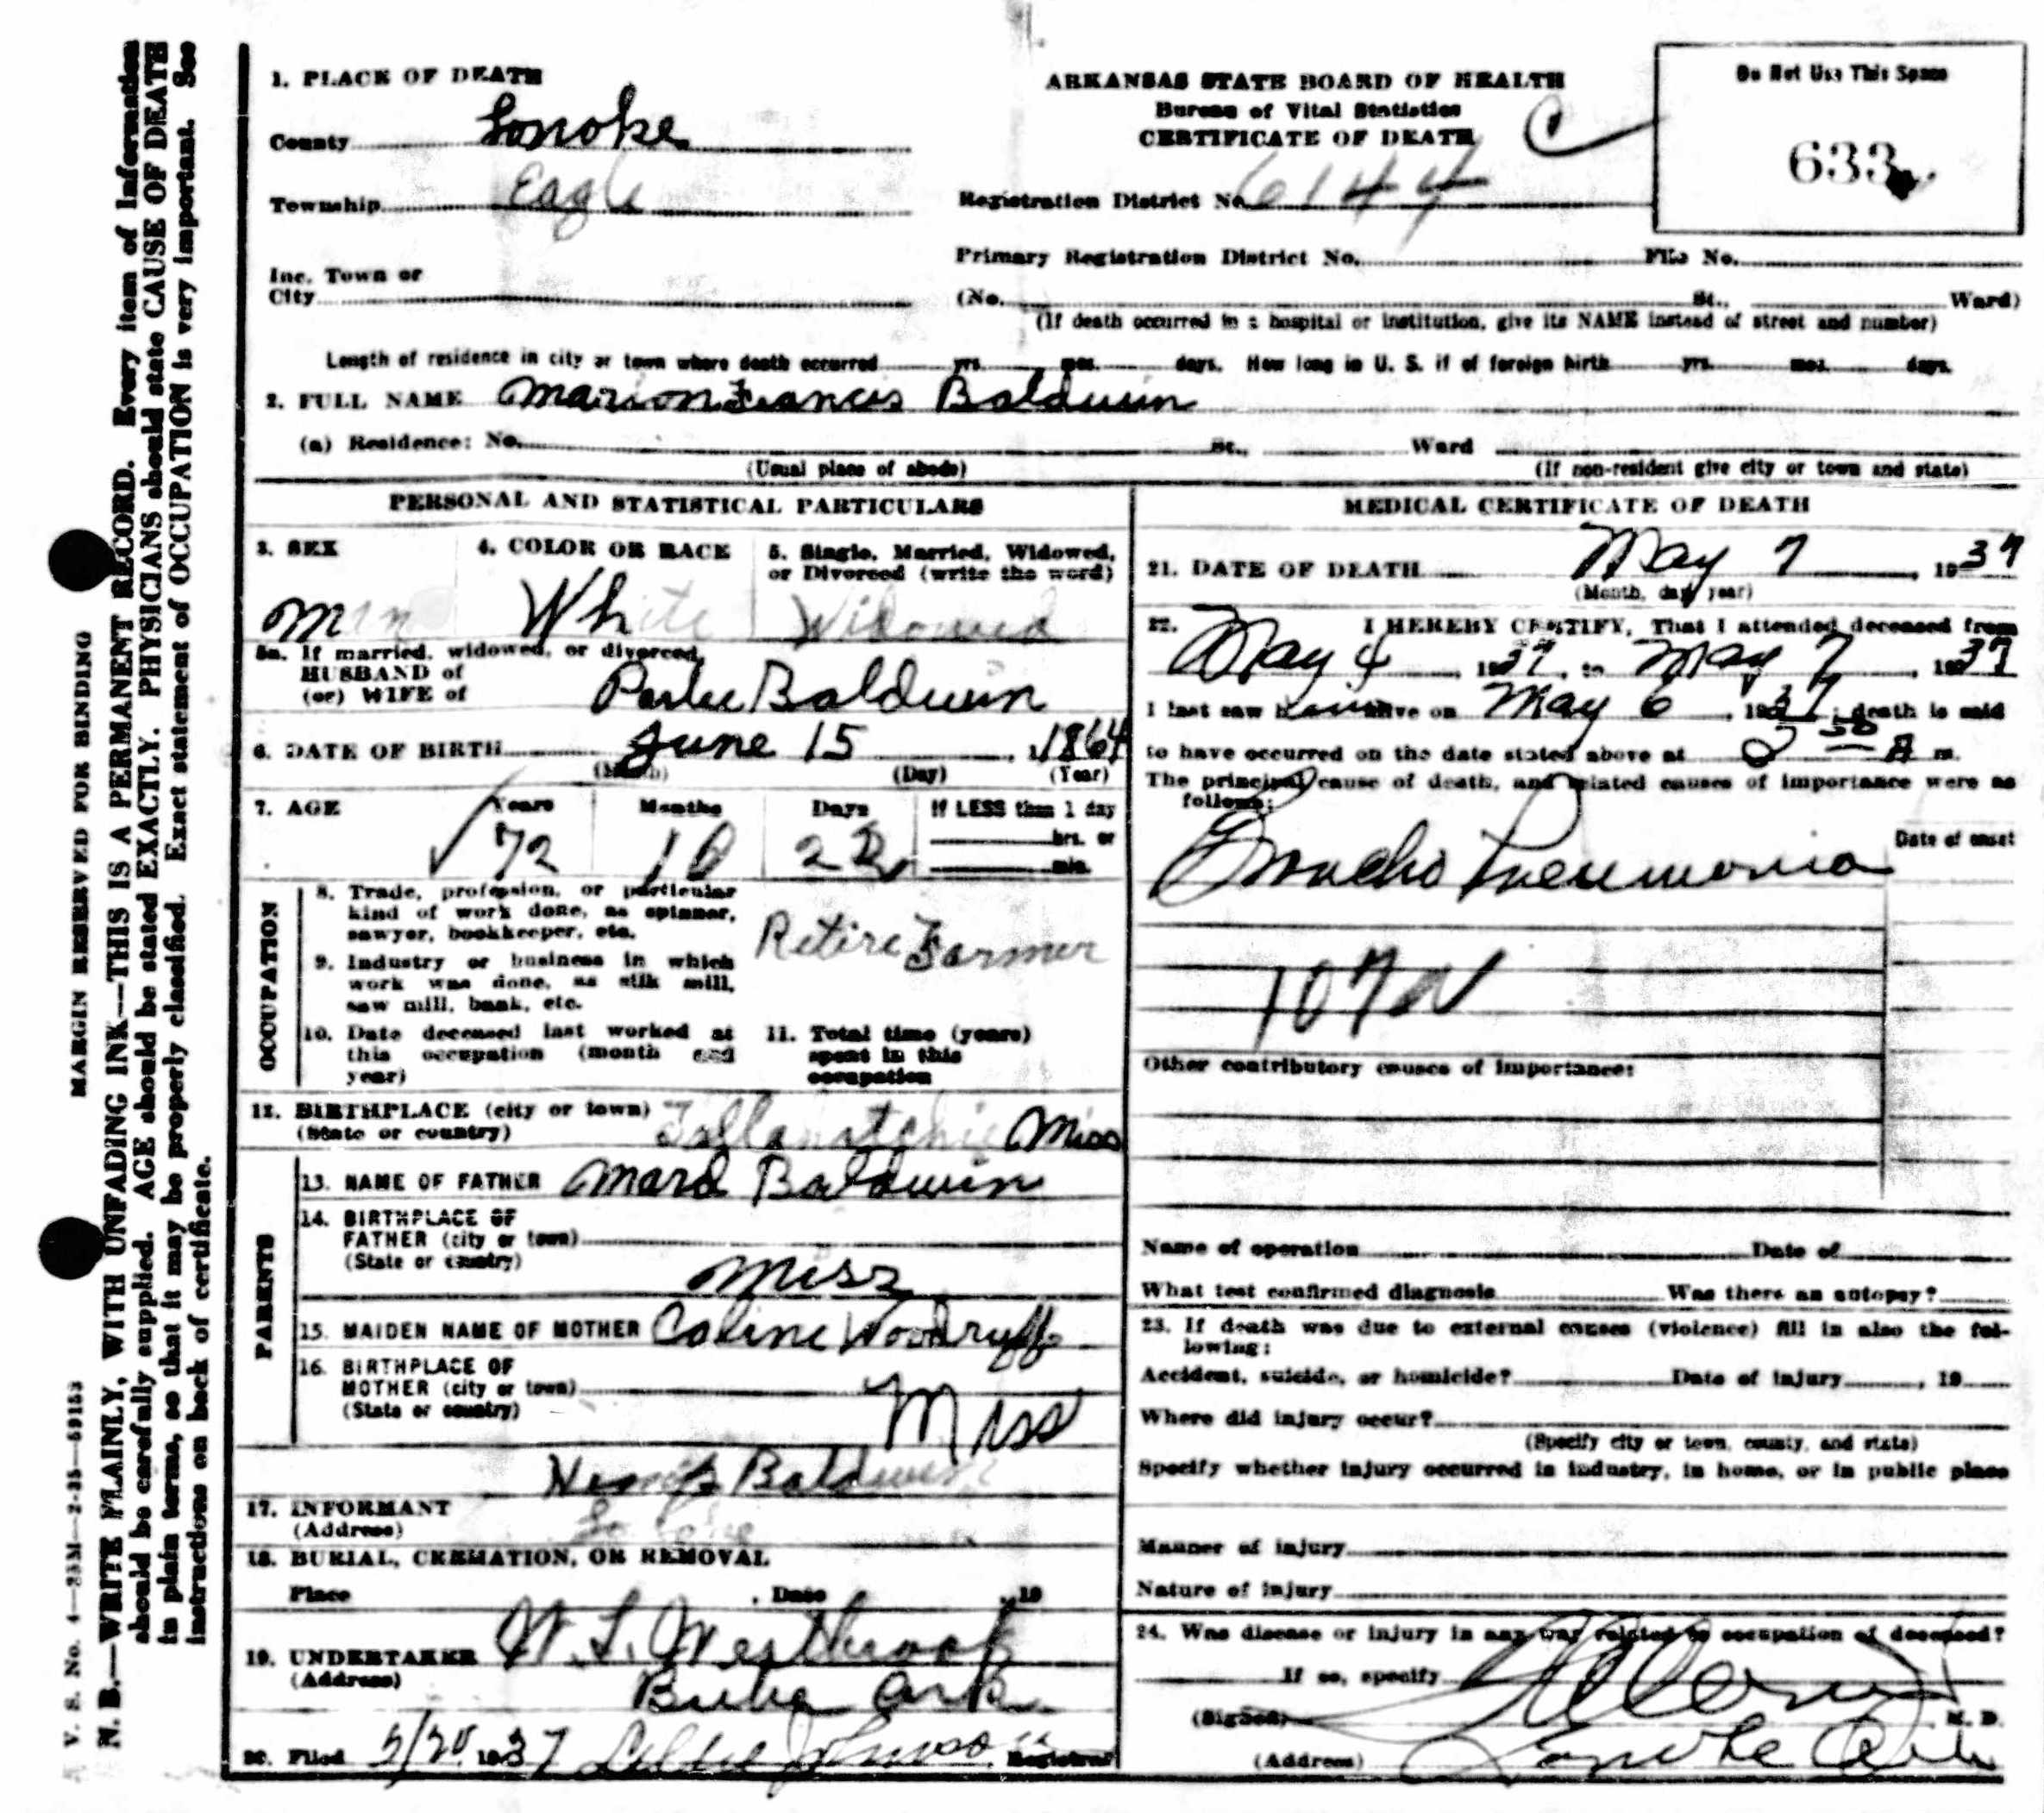 MARGIN RESERVED FOR BINDING
V. S. No. 4—25M—2-35—59153
N. B.—WRITE PLAINLY, WITH UNFADING INK—THIS IS A PERMANENT RECORD. Every item of information
should be carefully supplied. AGE should be stated EXACTLY. PHYSICIANS should state CAUSE OF DEATH
in plain terms, so that it may be properly classified. Exact statement of OCCUPATION is very important. See
instructions on back of certificate.
1. PLACE OF DEATH
County Lonoke
Township Eagle
Inc. Town or
City
ARKANSAS STATE BOARD OF HEALTH
Bureau of Vital Statistics
CERTIFICATE OF DEATH
C
Do Not Use This Space
633
Registration District No. 6144
Primary Registration District No. File No.
(No. St., Ward)
(If death occurred in a hospital or institution, give its NAME instead of street and number)
Length of residence in city or town where death occurred yrs. mos. days. How long in U. S. if of foreign birth yrs. mos. days.
2. FULL NAME Marion Francis Baldwin
(a) Residence: No. St., Ward
(Usual place of abode) (If non-resident give city or town and state)
PERSONAL AND STATISTICAL PARTICULARS
3. SEX 4. COLOR OR RACE 5. Single, Married, Widowed,
or Divorced (write the word)
White Widowed
5a. If married, widowed, or divorced
HUSBAND of
(or) WIFE of Baldwin
6. DATE OF BIRTH June 15, 1864
(Month) (Day) (Year)
7. AGE Years Months Days If LESS than 1 day
72 10 22 hrs. or
min.
OCCUPATION
8. Trade, profession, or particular
kind of work done, as spinner,
sawyer, bookkeeper, etc.
Retire Farmer
9. Industry or business in which
work was done, as silk mill,
saw mill, bank, etc.
10. Date deceased last worked at
this occupation (month and
year)
11. Total time (years)
spent in this
occupation
12. BIRTHPLACE (city or town) Tallahatchie Miss
(State or country)
PARENTS
13. NAME OF FATHER Mard Baldwin
14. BIRTHPLACE OF
FATHER (city or town)
(State or country) Miss
15. MAIDEN NAME OF MOTHER Woodruff
16. BIRTHPLACE OF
MOTHER (city or town)
(State or country) Miss
Baldwin
17. INFORMANT
(Address)
18. BURIAL, CREMATION, OR REMOVAL
Place , Date , 19
19. UNDERTAKER Westbrook
(Address) Ark
20. Filed 5/20 1937 Johnson Registrar
MEDICAL CERTIFICATE OF DEATH
21. DATE OF DEATH May 7, 1937
(Month, day, year)
22. I HEREBY CERTIFY, That I attended deceased from
May 4, 1937, to May 7, 1937
I last saw h alive on May 6, 1937; death is said
to have occurred on the date stated above at 2 50 a m.
The principal cause of death, and related causes of importance were as
follows:
Date of onset
Broncho Pneumonia
107a
Other contributory causes of importance:
Name of operation Date of
What test confirmed diagnosis Was there an autopsy?
23. If death was due to external causes (violence) fill in also the fol-
lowing:
Accident, suicide, or homicide? Date of injury , 19
Where did injury occur?
(Specify city or town, county, and state)
Specify whether injury occurred in industry, in home, or in public place
Manner of injury
Nature of injury
24. Was disease or injury in any way related to occupation of deceased?
If so, specify
(Signed) M. D.
(Address) Lonoke Ark